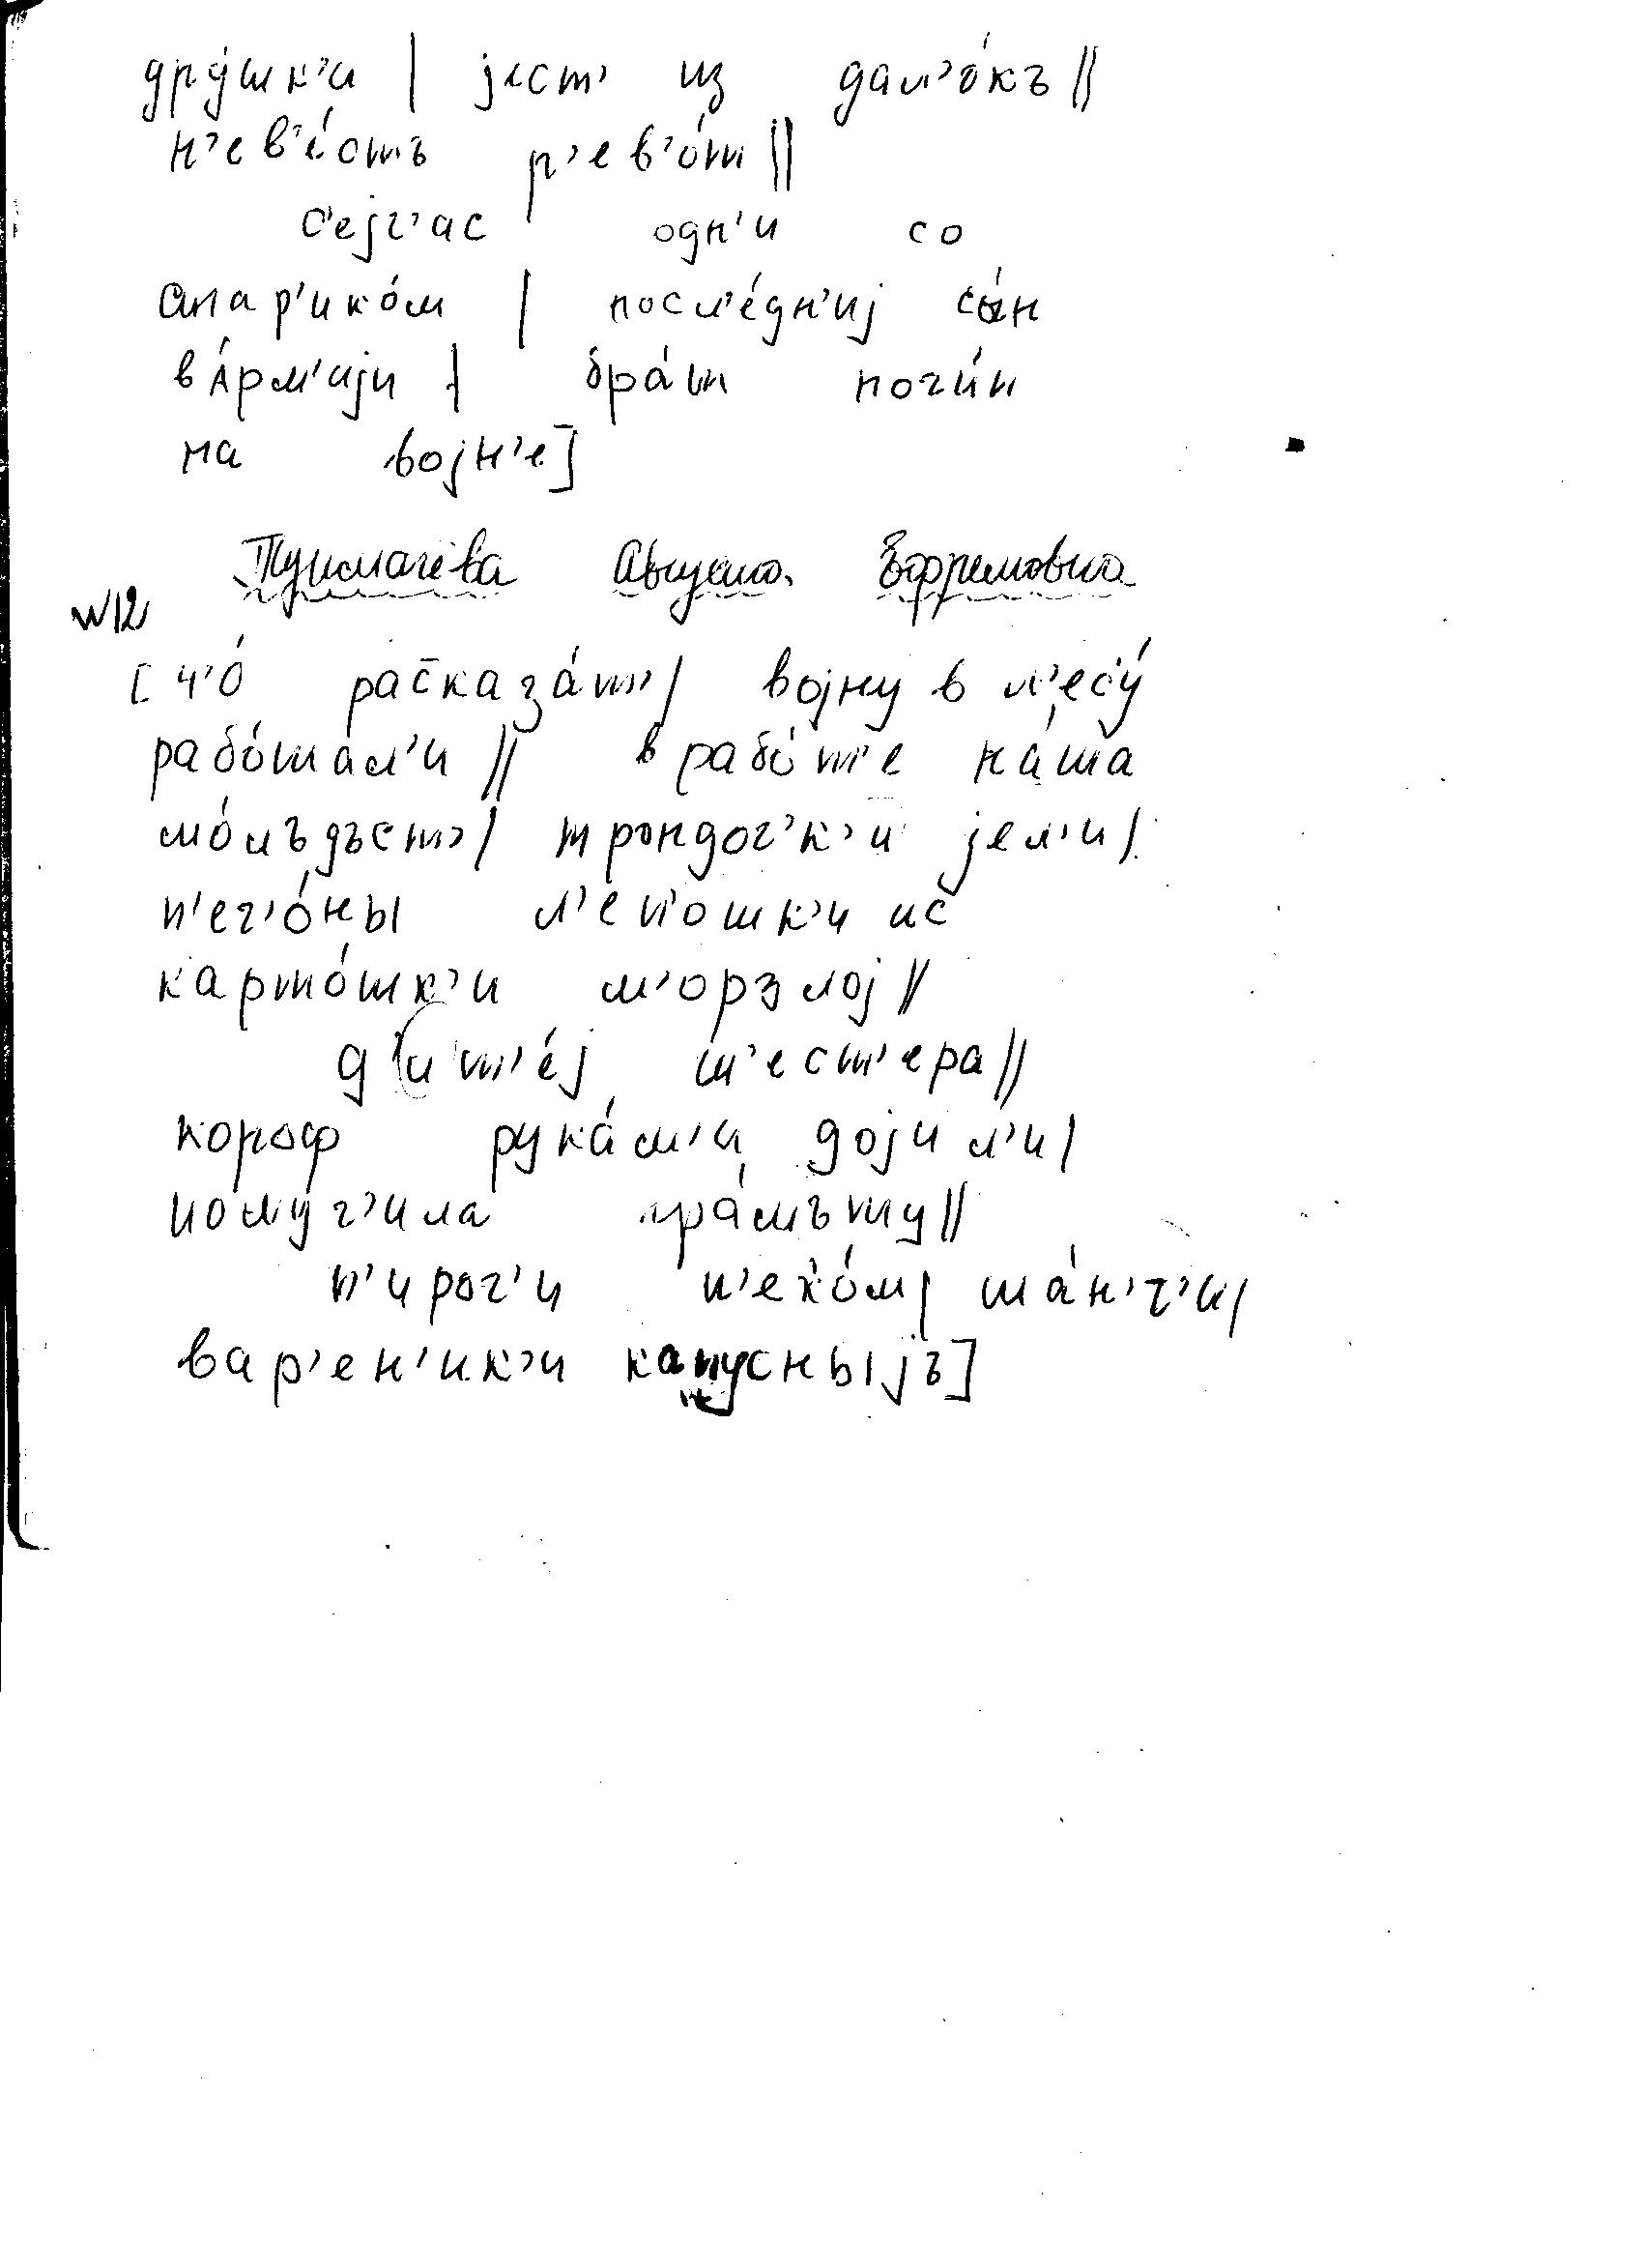 дру́шк'и | јест' из дал'о́къ ||
н'ев'е́стъ р'ев'о́т ||
с'ејч'ас одн'и со
стар'ико́м | посл'е́дн'иј сы́н
в а́рм'ији | бра́т поги́п
на војн'е]
Августа Ефремовна
№12
[ч'о́ раск̄аза́т' | војну в л'есу́
рабо́тал'и || в рабо́т'е на́ша
мо́лъдъст' | трондоч'к'и јел'и |
п'еч'о́ны л'еп'ошк'и ис
карто́шк'и м'орзлој ||
д'ит'е́ј ш'ест'ера ||
короф рука́м'и дојил'и |
получ'ила гра́мъту ||
п'ирог'и п'ек'о́м | ша́н'г'и |
вар'ен'ик'и капусныјъ]